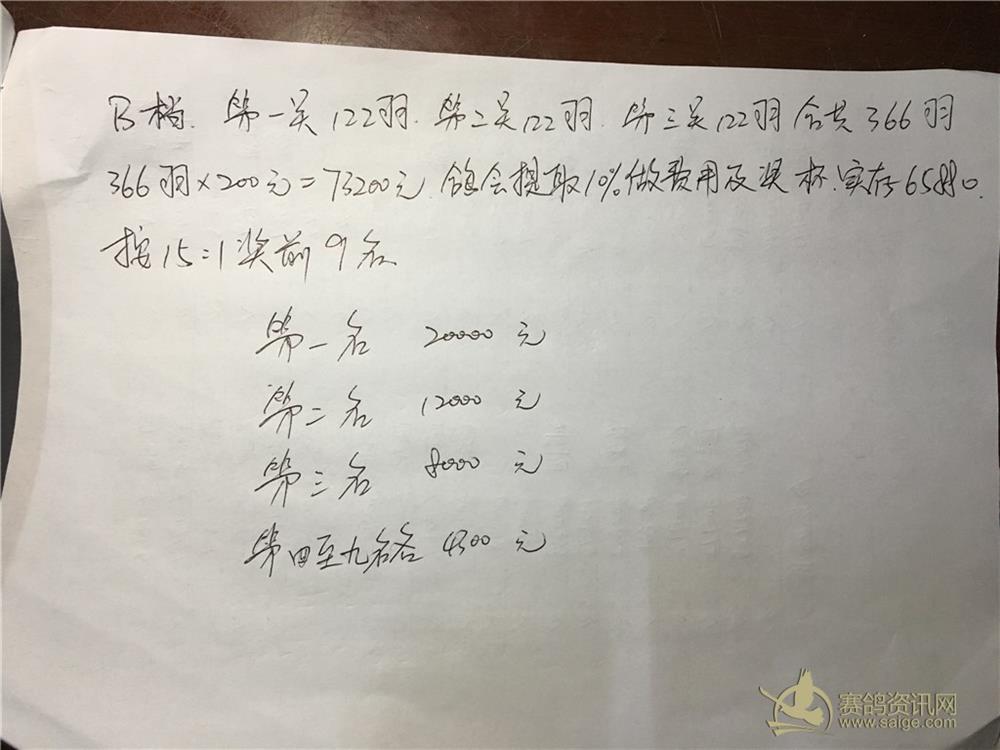 B档. 第一关122羽. 第二关122羽. 第三关122羽 合共 366羽
366羽×200元=73200元. 鸽会提取10%做费用及奖杯. 实存65880.
按15:1奖前9名
第一名 20000 元
第二名 12000 元
第三名 8000 元
第四至九名各 4300 元
赛鸽资讯网
www.saige.com